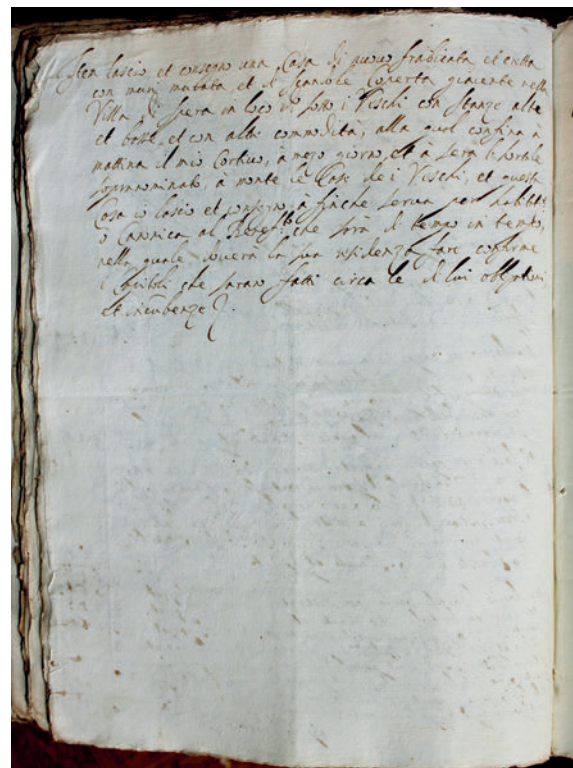 Item lascio, et consegno una Casa di nuovo fradicata et eretta
con muri murata, et di scandole Coperta giacente nella
Villa di Spera in loco di sotto i Vischi con stanze alte
et basse, et con altri commodità, alla qual confina à
mattina il mio Cortivo, à mezo giorno, et à sera li hortale
soprannominato, à monte le Case de i Vischi, et questa
Casa io lascio et consegno, à finche serva per habitt.e
ò Canonica al Benef.to che sarà di tempo in tempo,
nella quale doverà la sua residenza fare conforme
i Capitoli che saran fatti circa le di lui obligationi
et incubenze